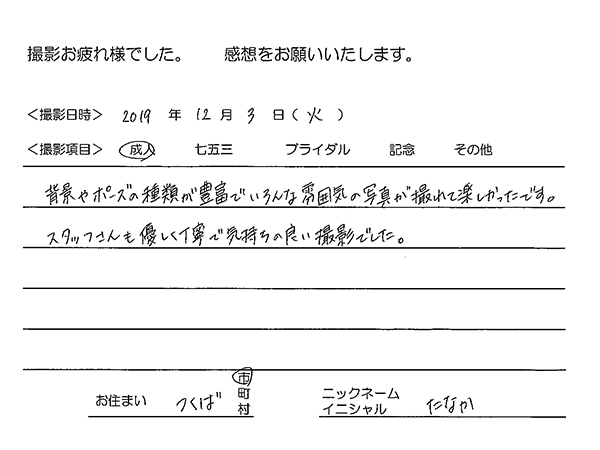 撮影お疲れ様でした。 感想をお願いいたします。
＜撮影日時＞ 2019 年 12 月 3 日 ( 火 )
＜撮影項目＞ 成人 七五三 ブライダル 記念 その他
背景やポーズの種類が豊富でいろんな雰囲気の写真が撮れて楽しかったです。
スタッフさんも優しく丁寧で気持ちの良い撮影でした。
お住まい つくば 市 町 村
ニックネーム イニシャル たなか